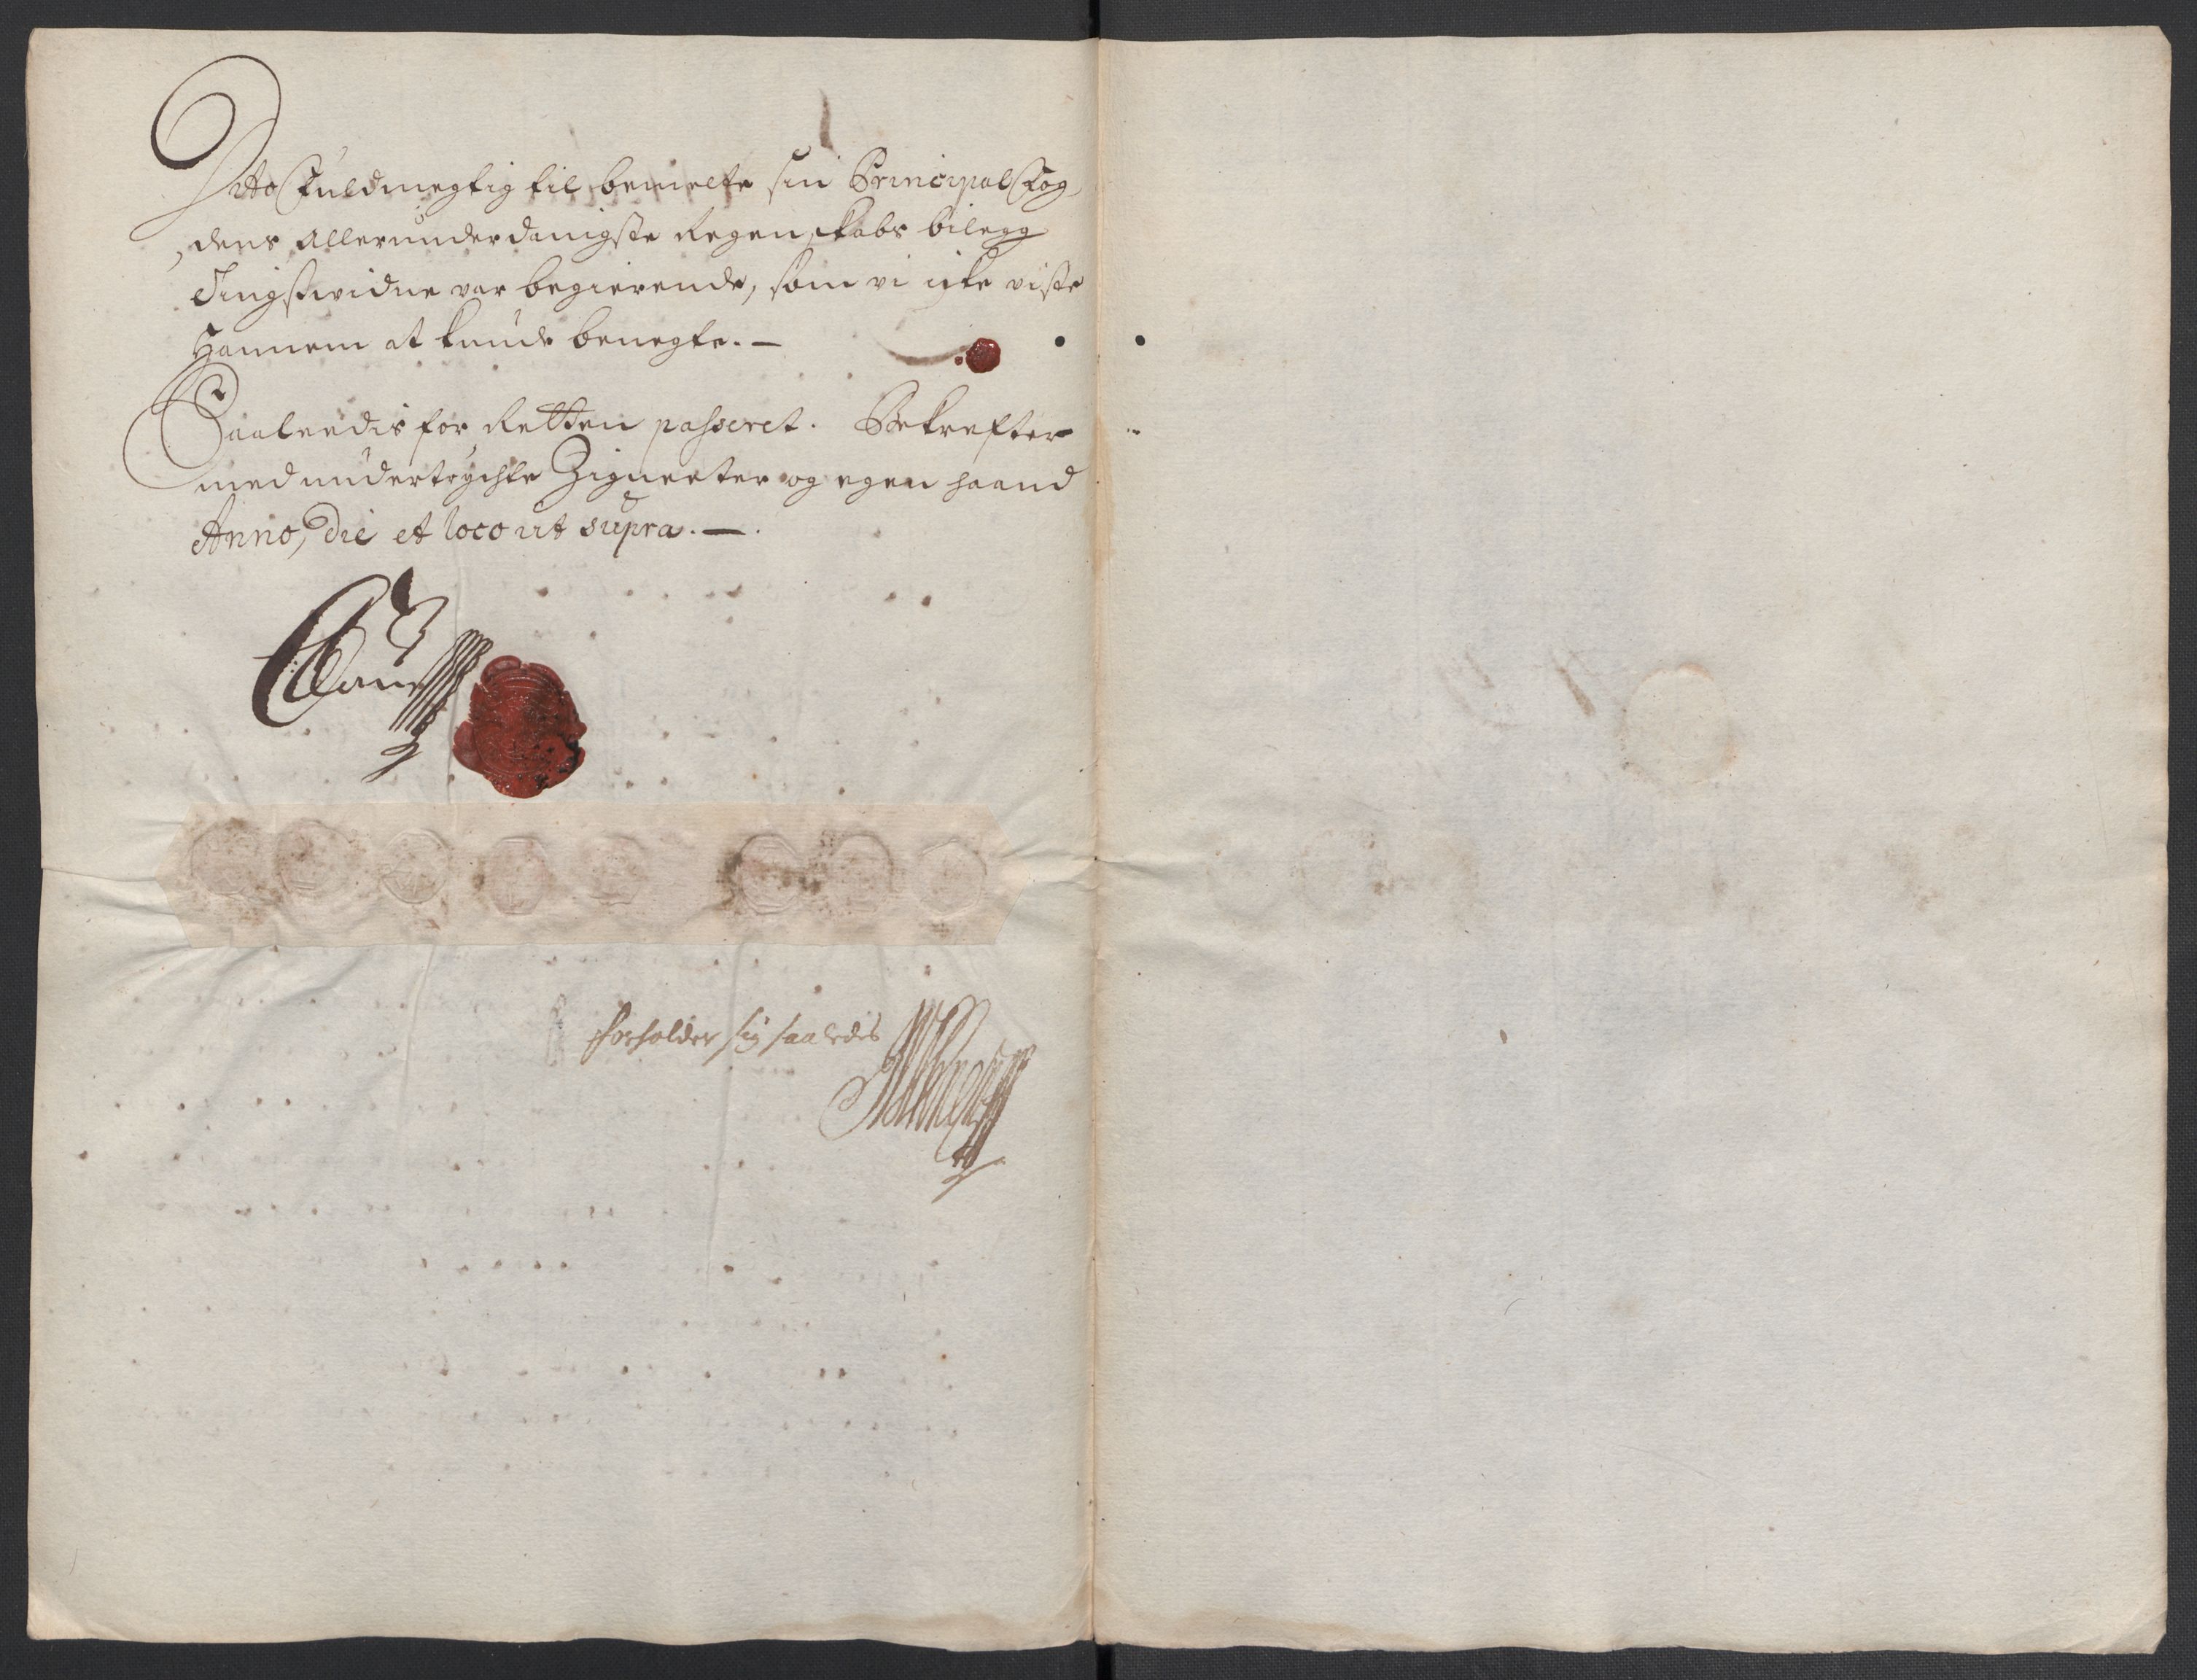 Dito Fuldmegtig til bemelte sin Principal Fog¬
dens allerunderdanigste Regenskabs bilegg
Tingswidne var begierende, som vi icke viste
Hannem at kunde benegte. —
Saaleedis for Retten passeret. Bekrefter
med undertrychte Zigneeter og egen haand
Anno, die et loco ut supra. —.
forholder sig saaledis